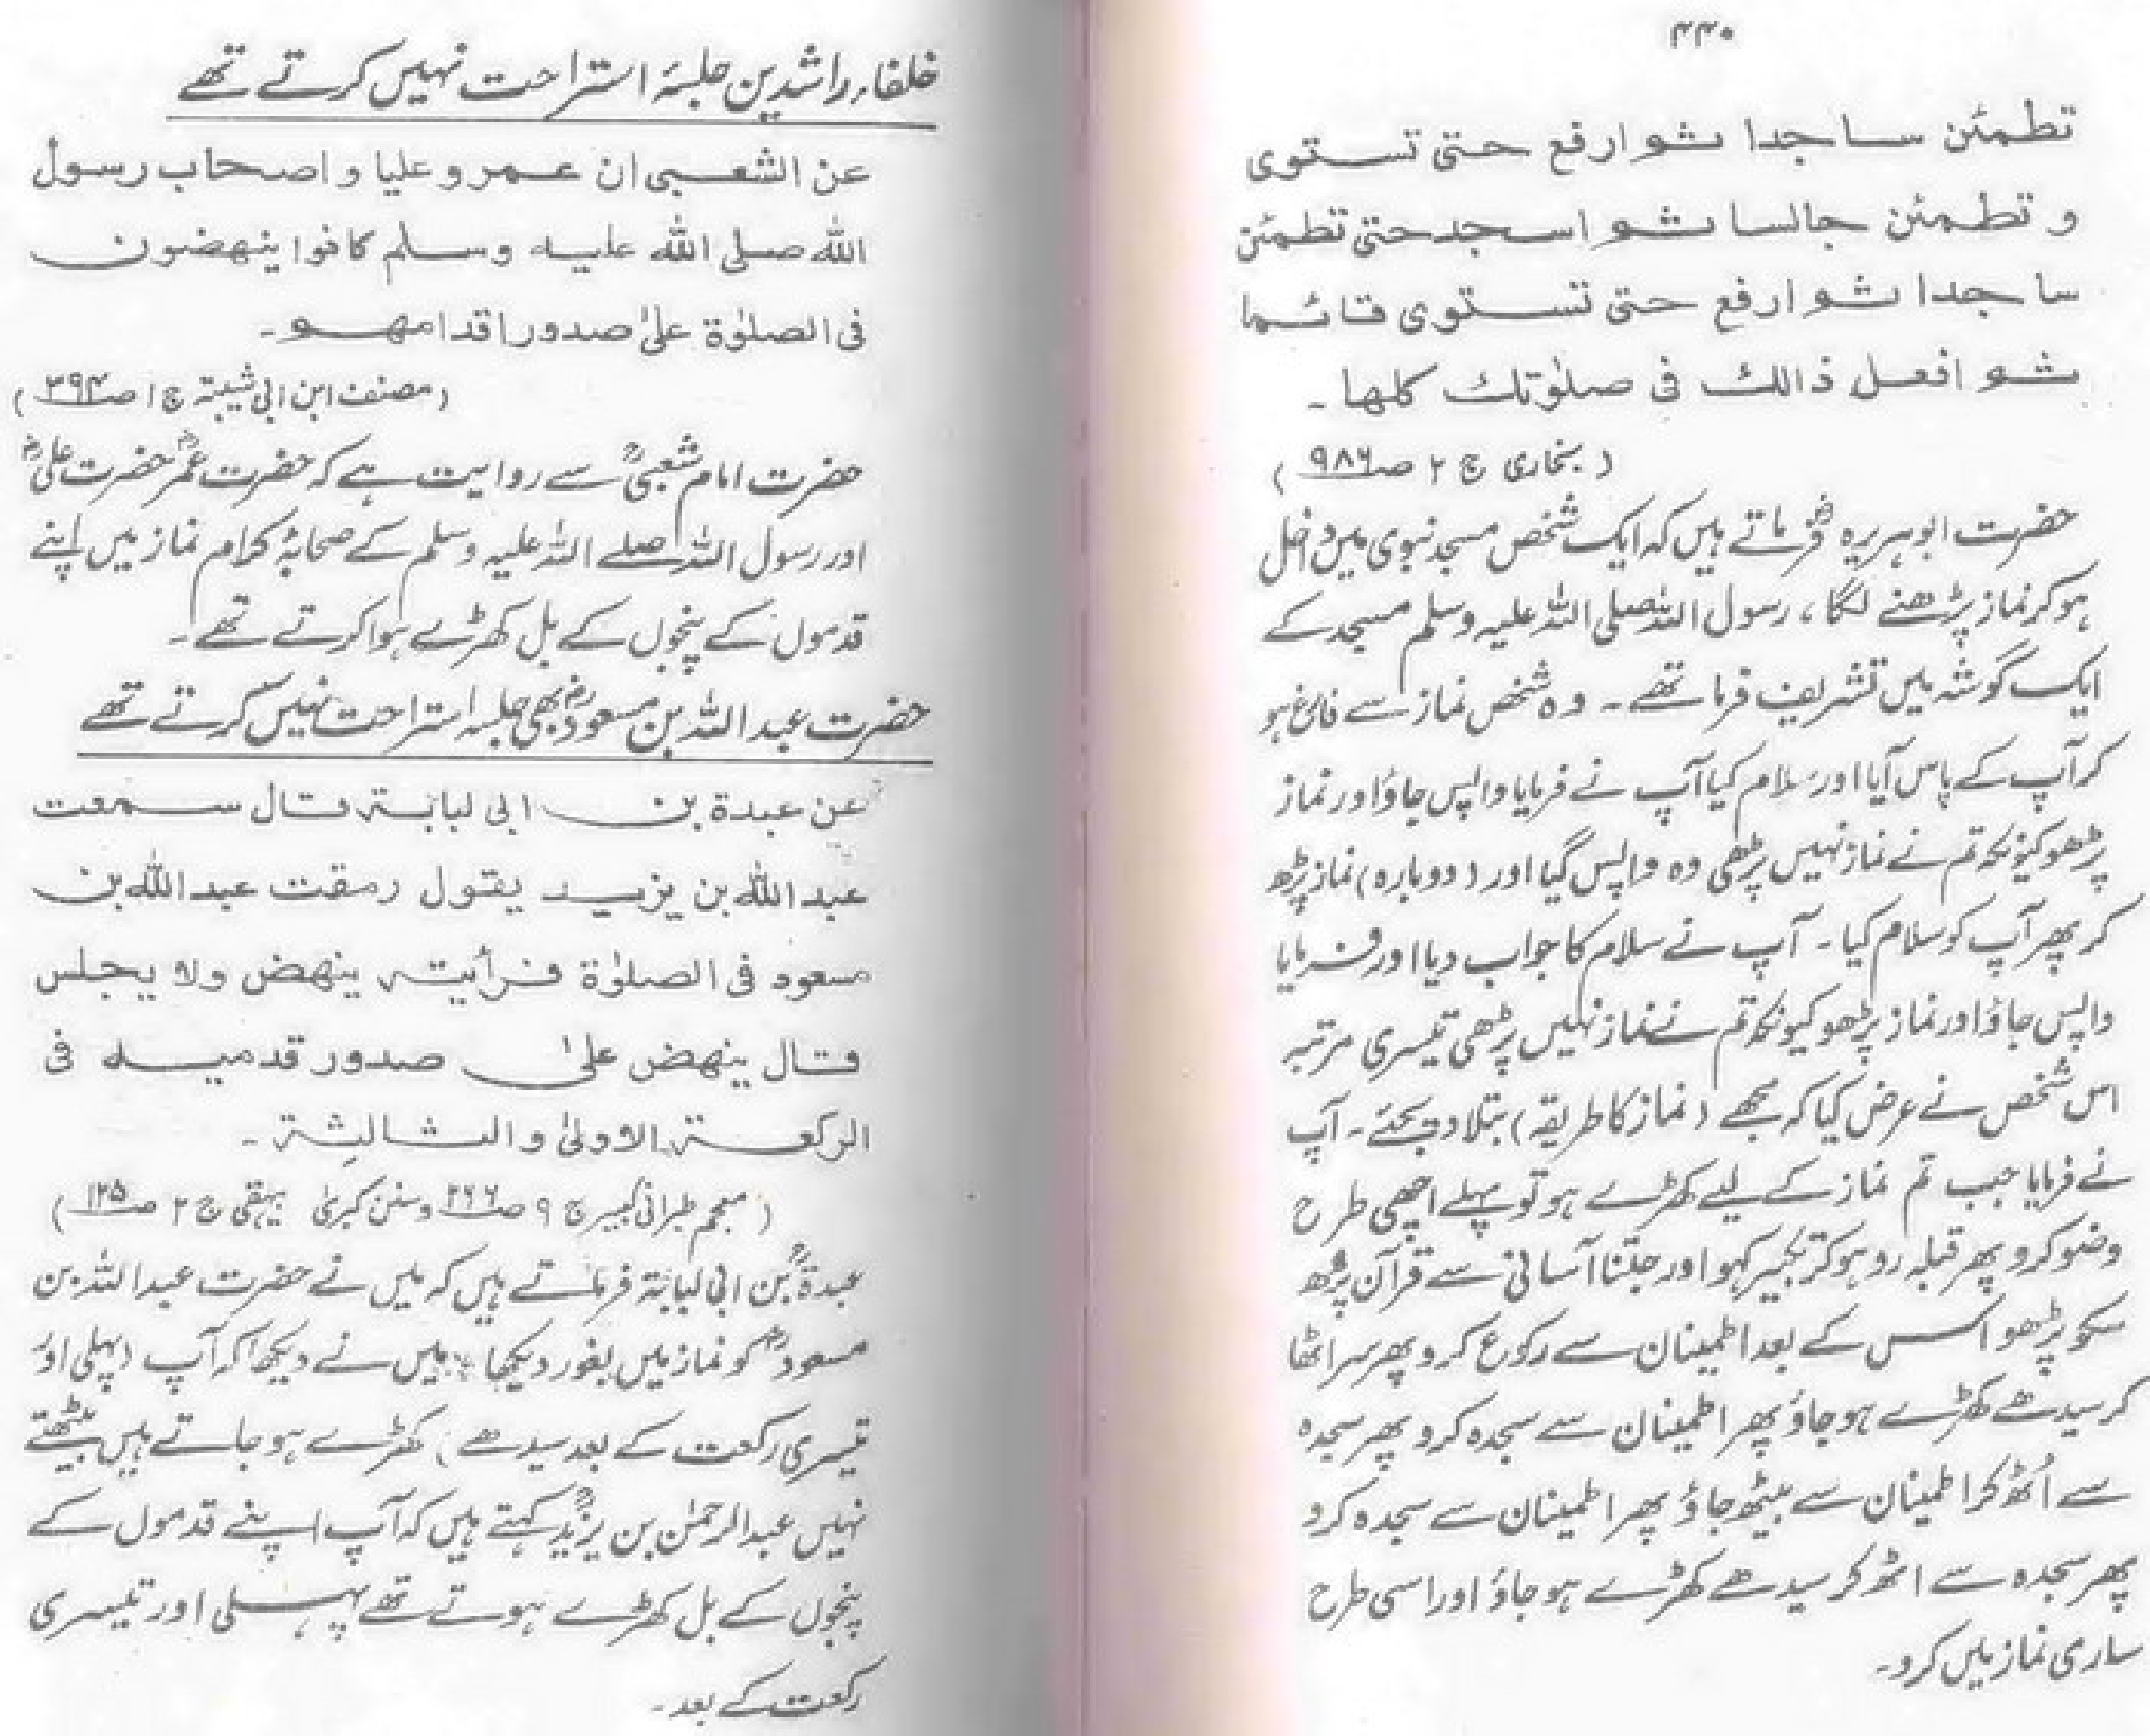 ۴۴۰
تطمئن ساجدا ثم ارفع حتی تستوی
و تطمئن جالسا ثم اسجد حتی تطمئن
ساجدا ثم ارفع حتی تستوی قائما
ثم افعل ذالك فی صلوٰتك كلها۔
(بخاری ج ۲ ص۹۸۶)
حضرت ابوہریرہ رضؓ فرماتے ہیں کہ ایک شخص مسجد نبوی میں داخل
ہو کر نماز پڑھنے لگا، رسول اللہ صلی اللہ علیہ وسلم مسجد کے
ایک گوشہ میں تشریف فرما تھے۔ وہ شخص نماز سے فارغ ہو
کر آپ کے پاس آیا اور سلام کیا آپ نے فرمایا واپس جاؤ اور نماز
پڑھو کیونکہ تم نے نماز نہیں پڑھی وہ واپس گیا اور (دوبارہ) نماز پڑھ
کر پھر آپ کو سلام کیا۔ آپ نے سلام کا جواب دیا اور فرمایا
واپس جاؤ اور نماز پڑھو کیونکہ تم نے نماز نہیں پڑھی تیسری مرتبہ
اس شخص نے عرض کیا کہ مجھے (نماز کا طریقہ) بتلا دیجئے۔ آپ
نے فرمایا جب تم نماز کے لیے کھڑے ہو تو پہلے اچھی طرح
وضو کرو پھر قبلہ رو ہو کر تکبیر کہو اور جتنا آسانی سے قرآن پڑھ
سکو پڑھو اس کے بعد اطمینان سے رکوع کرو پھر سر اٹھا
کر سیدھے کھڑے ہو جاؤ پھر اطمینان سے سجدہ کرو پھر سجدہ
سے اُٹھ کر اطمینان سے بیٹھ جاؤ پھر اطمینان سے سجدہ کرو
پھر سجدہ سے اٹھ کر سیدھے کھڑے ہو جاؤ اور اسی طرح
ساری نماز میں کرو۔
خلفاء راشدین جلسۂ استراحت نہیں کرتے تھے
عن الشعبی ان عمر و علیا و اصحاب رسول
الله صلی الله علیه وسلم كانوا ینهضون
فی الصلوٰة علیٰ صدور اقدامهم۔
(مصنف ابن ابی شیبۃ ج ۱ ص۳۹۴)
حضرت امام شعبیؒ سے روایت ہے کہ حضرت عمرؓ حضرت علیؓ
اور رسول اللہ صلے اللہ علیہ وسلم کے صحابۂ کرام نماز میں اپنے
قدموں کے پنجوں کے بل کھڑے ہوا کرتے تھے۔
حضرت عبد اللہ بن مسعودؓ بھی جلسہ استراحت نہیں کرتے تھے
عن عبدة بن ابی لبابة قال سمعت
عبد الله بن یزید یقول رمقت عبد الله بن
مسعود فی الصلوٰة فرأیته ینهض ولا یجلس
قال ینهض علیٰ صدور قدمیه فی
الركعة الاولیٰ و الثالثة۔
(معجم طبرانی کبیر ج ۹ ص۲۶۶ و سنن کبریٰ بیہقی ج ۲ ص۱۲۵)
عبدۃؒ بن ابی لبابۃ فرماتے ہیں کہ میں نے حضرت عبد اللہ بن
مسعودؓ کو نماز میں بغور دیکھا، میں نے دیکھا کہ آپ (پہلی اور
تیسری رکعت کے بعد سیدھے) کھڑے ہو جاتے ہیں بیٹھتے
نہیں عبد الرحمٰن بن یزیدؒ کہتے ہیں کہ آپ اپنے قدموں کے
پنجوں کے بل کھڑے ہوتے تھے پہلی اور تیسری
رکعت کے بعد۔